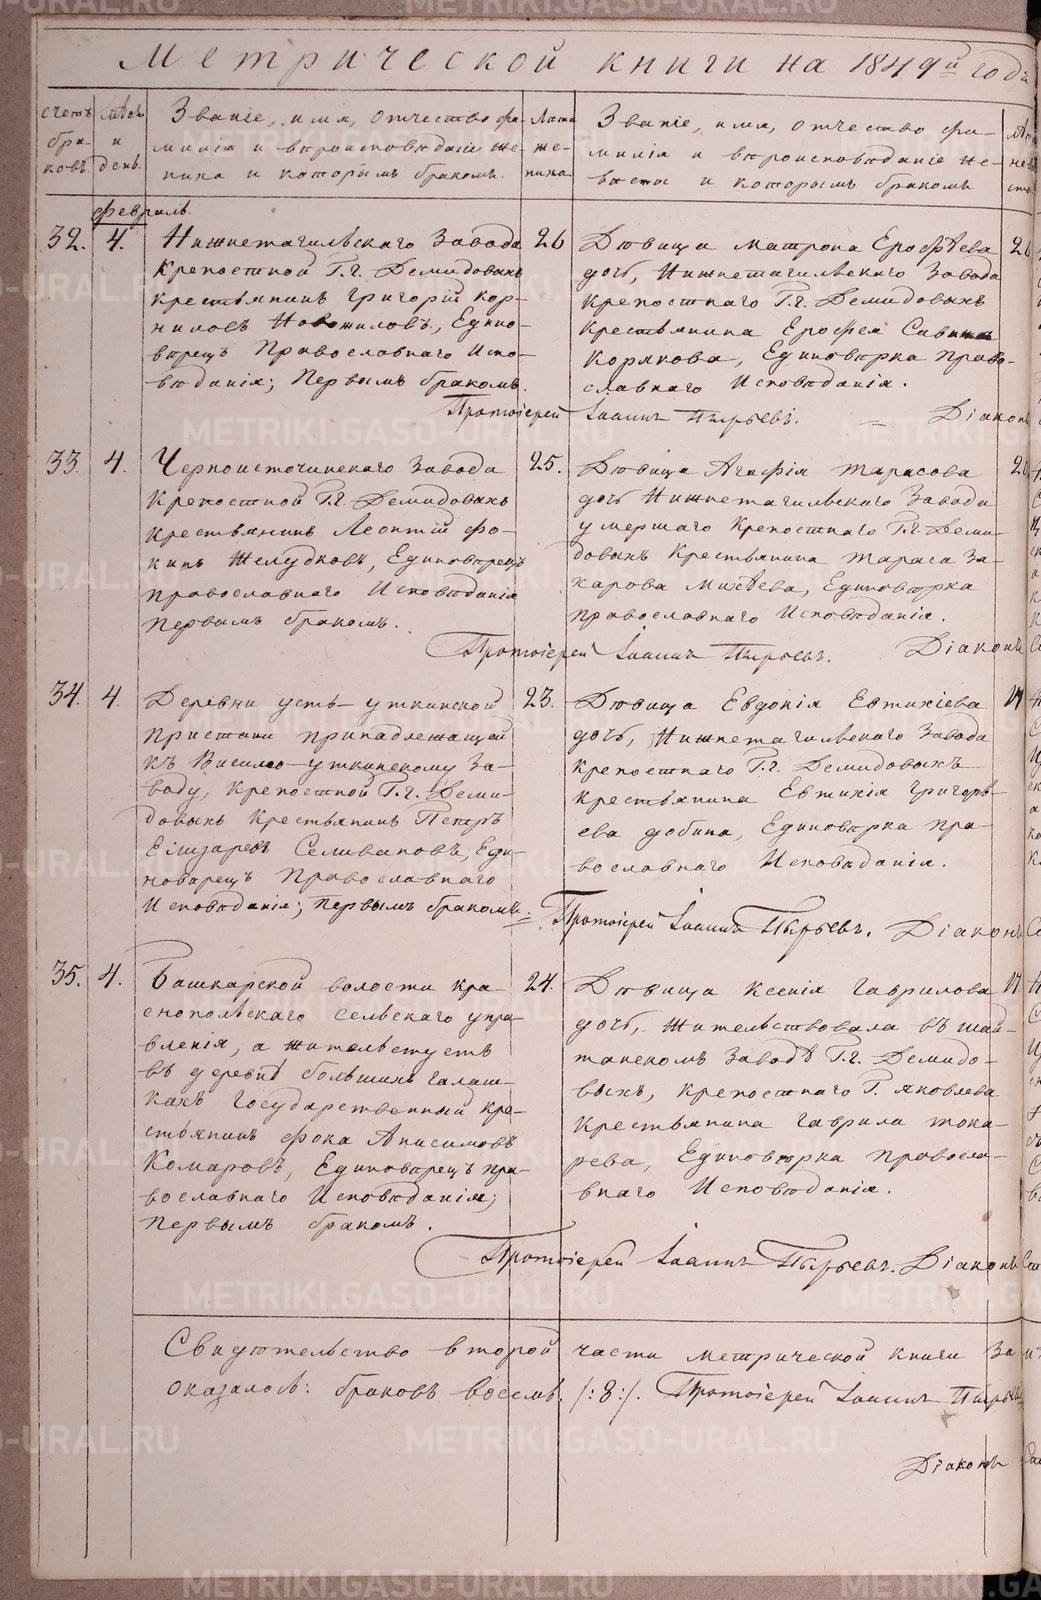 Метрической книги на 1849й годъ
Счетъ
бра-
ковъ.
Мѣсяцъ
и
день.
Званіе, имя, отчество фа-
милія и вѣроисповѣданіе же-
ниха и которымъ бракомъ.
Лѣта
же-
ниха.
Званіе, имя, отчество фа-
милія и вѣроисповѣданіе не-
вѣсты и которымъ бракомъ
Февраль.
32. 4.
Нижнетагильскаго Завода
крепостной Г.г. Демидовыхъ
крестьянинъ Григорій Кор-
ниловъ Новожиловъ, Едино-
вѣрецъ Православнаго Испо-
вѣданія; Первымъ бракомъ.
26
Дѣвица Матрона Ерофѣева
дочь, Нижнетагильскаго Завода
крепостнаго Г.г. Демидовыхъ
крестьянина Ерофея Савина
Корякова, Единовѣрка Право-
славнаго Исповѣданія.
Протоіерей Іоаннъ Пырьевъ. Діаконъ
33. 4.
Черноисточинскаго Завода
Крепостной Г.г. Демидовыхъ
крестьянинъ Леонтій Фо-
кинъ Желудковъ, Единовѣрецъ
православнаго Исповѣданія
Первымъ бракомъ.
25.
Дѣвица Агафія Тарасова
дочь Нижнетагильскаго Завода
умершаго Крепостнаго Г.г. Деми-
довыхъ Крестьянина Тараса За-
харова Михѣева, Единовѣрка
православнаго Исповѣданія.
Протоіерей Іоаннъ Пырьевъ. Діаконъ
34. 4.
Деревни усть-уткинской
пристани принадлежащей
къ Висимо-уткинскому За-
воду, крепостной Г.г. Деми-
довыхъ Крестьянинъ Петръ
Елизаровъ Селивановъ, Еди-
новѣрецъ Православнаго
Исповѣданія; первымъ бракомъ.
23.
Дѣвица Евдокія Евтихіева
дочь, Нижнетагильскаго Завода
крепостнаго Г.г. Демидовыхъ
крестьянина Евтихія Григорь-
ева Добина, Единовѣрка Пра-
вославнаго Исповѣданія.
17
Протоіерей Іоаннъ Пырьевъ. Діаконъ
35. 4.
Башкарской волости Кра-
снопольскаго сельскаго упра-
вленія, а жительствуетъ
въ деревнѣ большихъ Галаш-
кахъ Государственный кре-
стьянинъ Фока Анисимовъ
Комаровъ, Единовѣрецъ пра-
вославнаго Исповѣданія;
первымъ бракомъ.
24.
Дѣвица Ксенія Гаврилова
дочь, жительствовала въ Шай-
танскомъ Заводѣ Г.г. Демидо-
выхъ, крепостнаго Г. Яковлева
крестьянина Гаврила Тока-
рева, Единовѣрка Правосла-
внаго Исповѣданія.
17
Протоіерей Іоаннъ Пырьевъ. Діаконъ
Свидѣтельство второй части метрической книги За
оказалось: браковъ восемь. /:8:/. Протоіерей Іоаннъ Пырьевъ
Діаконъ
METRIKI.GASO-URAL.RU